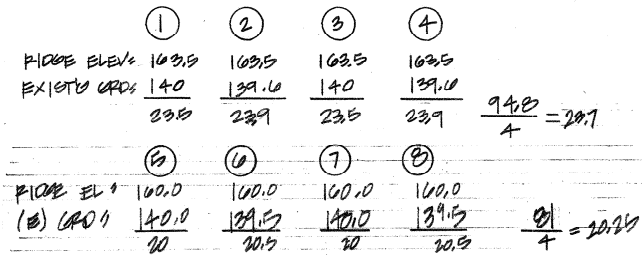 1 2 3 4
RIDGE ELEV: 163.5 163.5 163.5 163.5
EXIST'G GRD: 140 139.6 140 139.6
23.5 23.9 23.5 23.9 94.8/4 = 23.7
5 6 7 8
RIDGE EL: 160.0 160.0 160.0 160.0
(E) GRD: 140.0 139.5 140.0 139.5
20 20.5 20 20.5 81/4 = 20.25